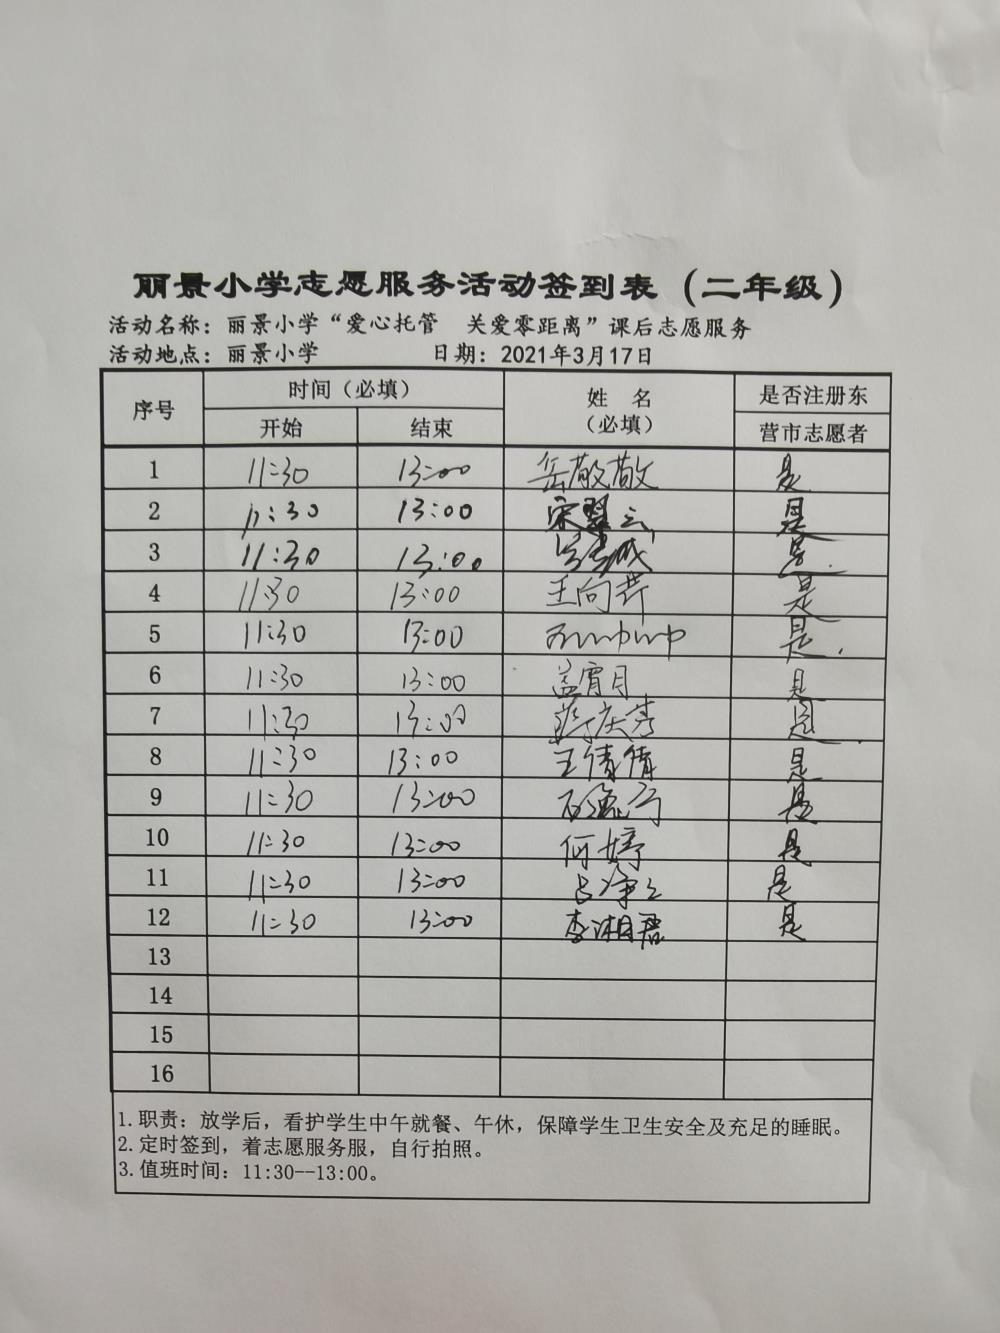 丽景小学志愿服务活动签到表（二年级）
活动名称：丽景小学“爱心托管 关爱零距离”课后志愿服务
活动地点：丽景小学 日期：2021年3月17日
序号 时间（必填） 姓 名（必填） 是否注册东营市志愿者
开始 结束
1 11:30 13:00 岳敬敬 是
2 11:30 13:00 宋翠云 是
3 11:30 13:00 是
4 11:30 13:00 王向荣 是
5 11:30 13:00 是
6 11:30 13:00 盖霄月 是
7 11:30 13:00 是
8 11:30 13:00 王倩倩 是
9 11:30 13:00 是
10 11:30 13:00 何婷 是
11 11:30 13:00 是
12 11:30 13:00 李湘君 是
13
14
15
16
1.职责：放学后，看护学生中午就餐、午休，保障学生卫生安全及充足的睡眠。
2.定时签到，着志愿服务服，自行拍照。
3.值班时间：11:30--13:00。